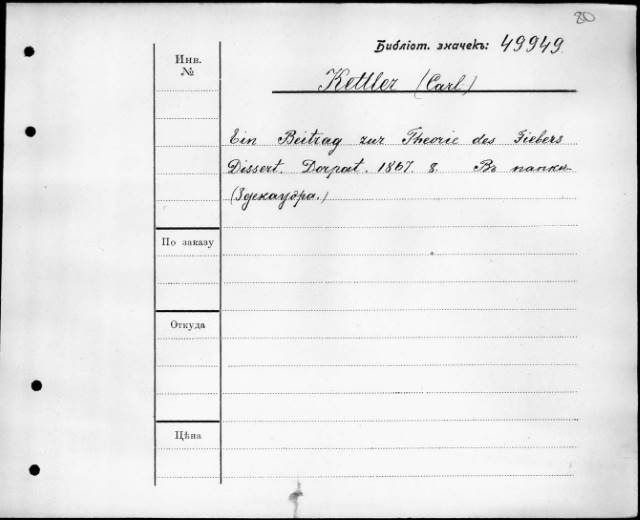 80
Библіот. значекъ: 49949.
Инв.
№
Kettler (Carl)
Ein Beitrag zur Theorie des Fiebers
Dissert. Dorpat. 1867. 8. Въ папки
(Здекаура.)
По заказу
Откуда
Цѣна